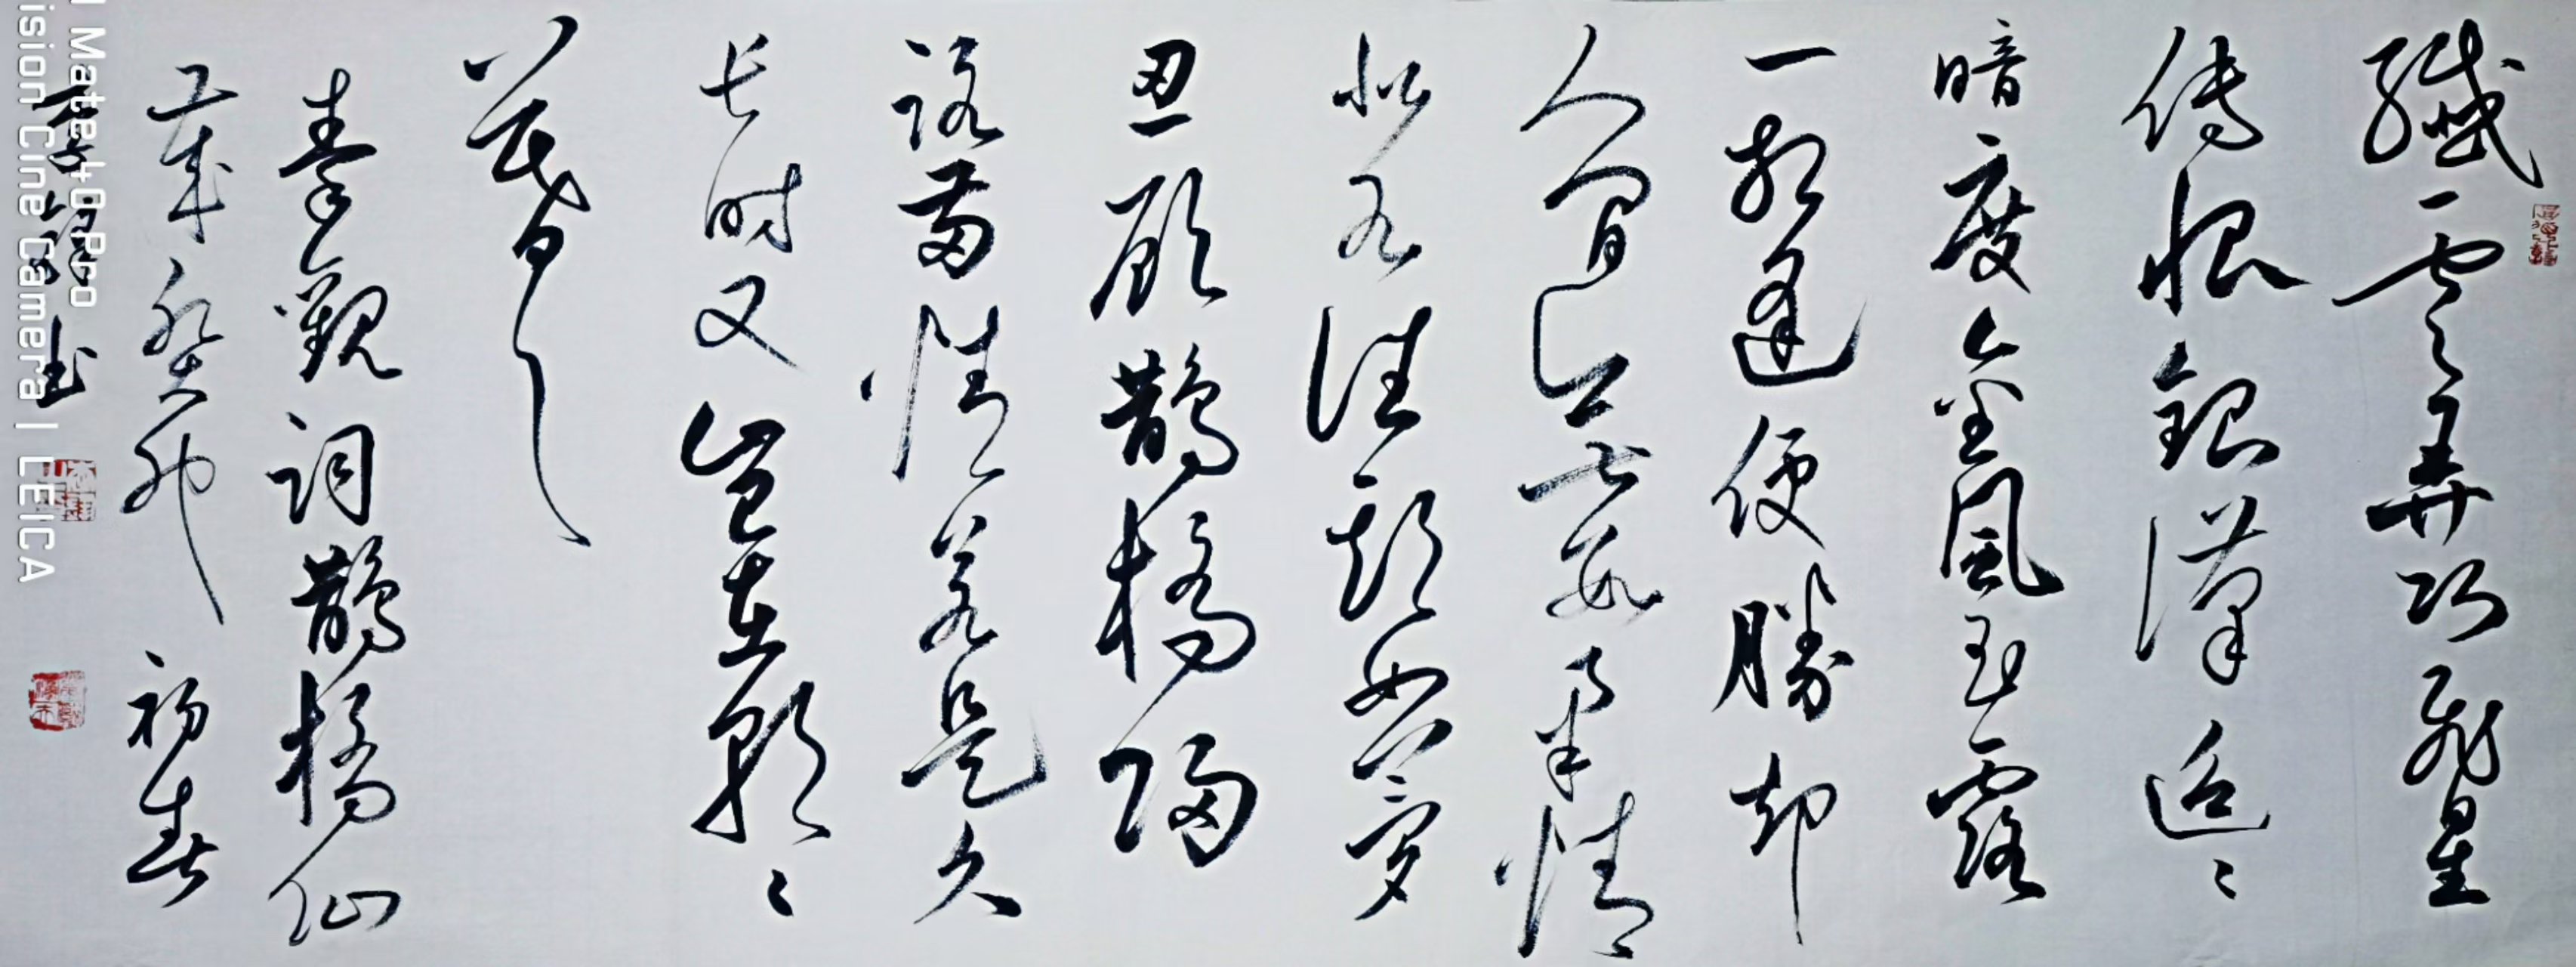 纖云弄巧飛星
傳恨銀漢迢〻
暗度金風玉露
一相逢便勝却
人間無數柔情
似水佳期如夢
忍顧鵲橋歸
路兩情若是久
长时又豈在朝〻
暮〻
秦觀詞鵲橋仙
歲癸卯初春
書
Mate40 Pro
ision Cine Camera | LEICA